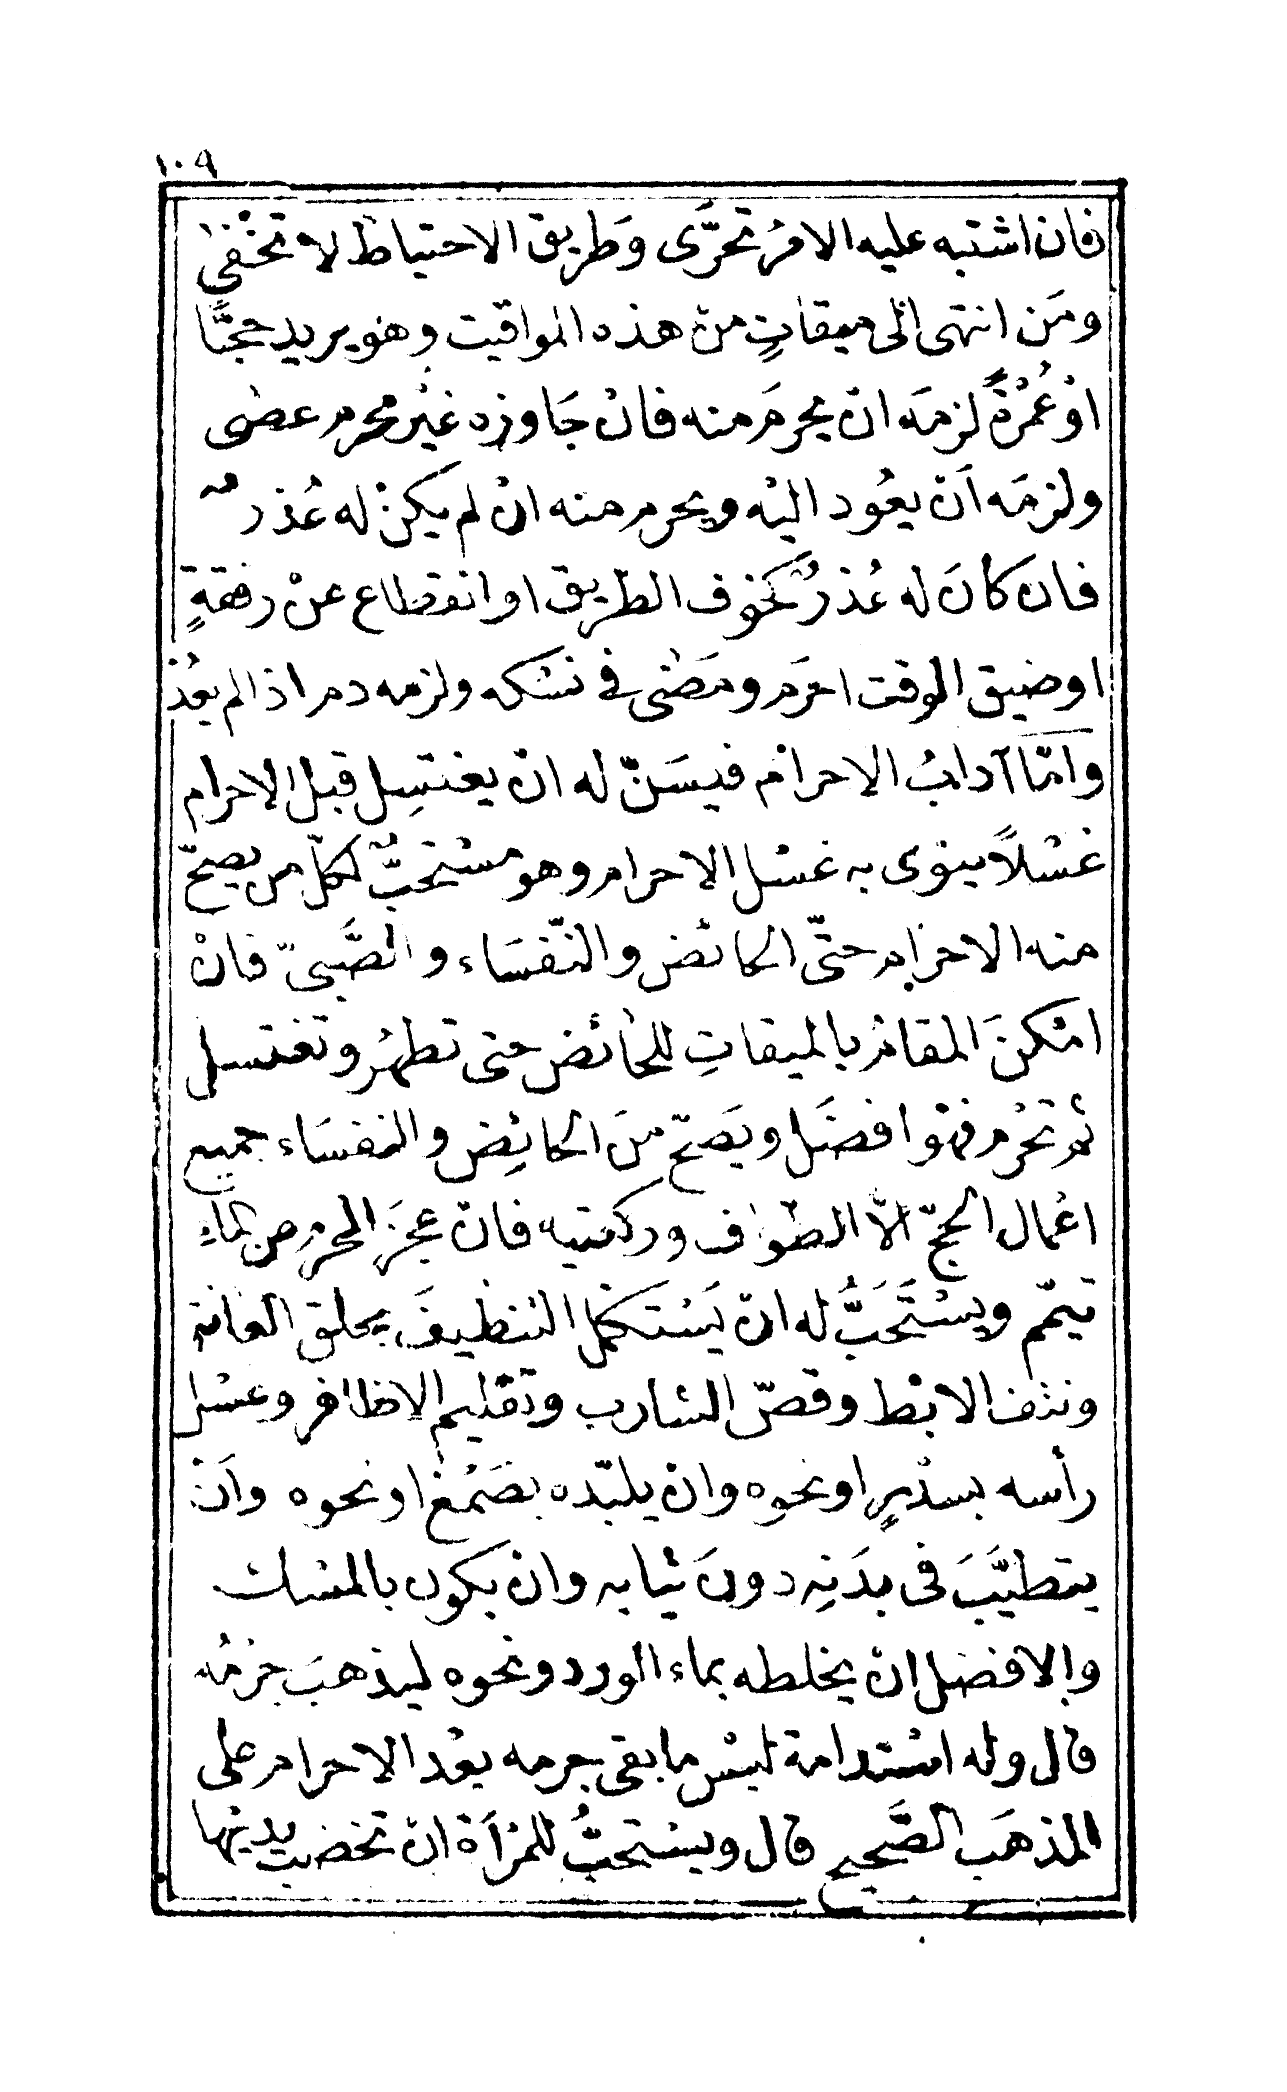 ١٠٩
فان اشتبه عليه الامرُ تحرَّى وَطريق الاحتياط لا تخفى
ومَن انتهى الى ميقاتٍ من هذه المواقيت وهو يريد حجّاً
اوْ عُمْرَةً لزمَه ان يحرمَ منه فانْ جَاوزه غيْر محرم عصٰى
ولزمَه اَن يعُود اليْه ويحرم منه انْ لم يكنْ له عُذرٌ
فان كانَ له عُذرٌ كخوف الطّريق او انقطاع عنْ رفقةٍ
او ضيق الوقت احرَم ومَضٰى في نسْكه ولزمه دم اذا لم يعُدْ
وامّا آدابُ الاحرام فيسَنّ له ان يغتسِل قبل الاحرام
غسْلاً ينوى به غسْل الاحرام وهو مسْتحبٌّ لكلّ من يصحّ
منه الاحرام حتّى الحائض والنّفسَاء والصَّبىّ فانْ
امْكنَ المقام بالميقاتِ للحائض حتى تطهُر وتغتسل
ثم تحْرم فهْو افضَل ويَصحّ منَ الحائِض والنفسَاء جميع
اعْمال الحجّ الاّ الطّوَاف وركعتيه فان عجزَ المحرم عن الماءِ
تيمّم ويسْتَحَبُّ له ان يَسْتكمل التنظيفَ بحلق العانة
ونتْف الابْط وقصّ الشارب وتقْليم الاظافر وغسْل
رأسه بسدْرٍ او نحوه وان يلبّده بصَمْغ او نحوه واَن
يتطيَّبَ فى بدَنِه دونَ ثيابه وان يكون بالمسْك
والافضل ان يخلطه بماء الورد ونحوه ليذهبَ جرْمُه
قال وله اسْتدامة لبْس ما بقى جرمه بعْد الاحرام على
المذهَب الصَّحيح قال ويسْتحبُّ للمرْأة ان تخضب يديْها